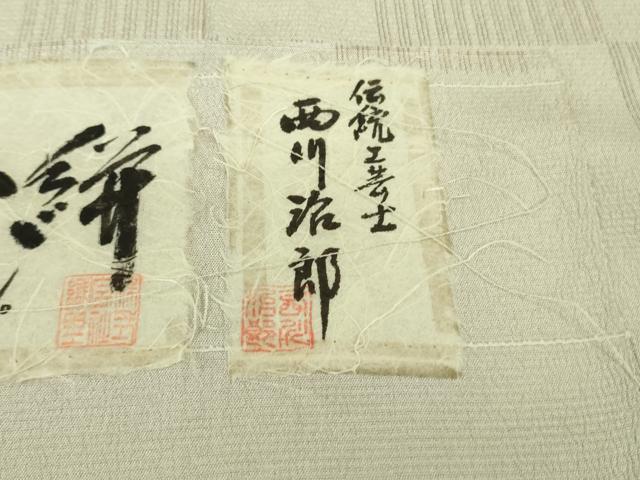 伝統工芸士
西川治郎
絣